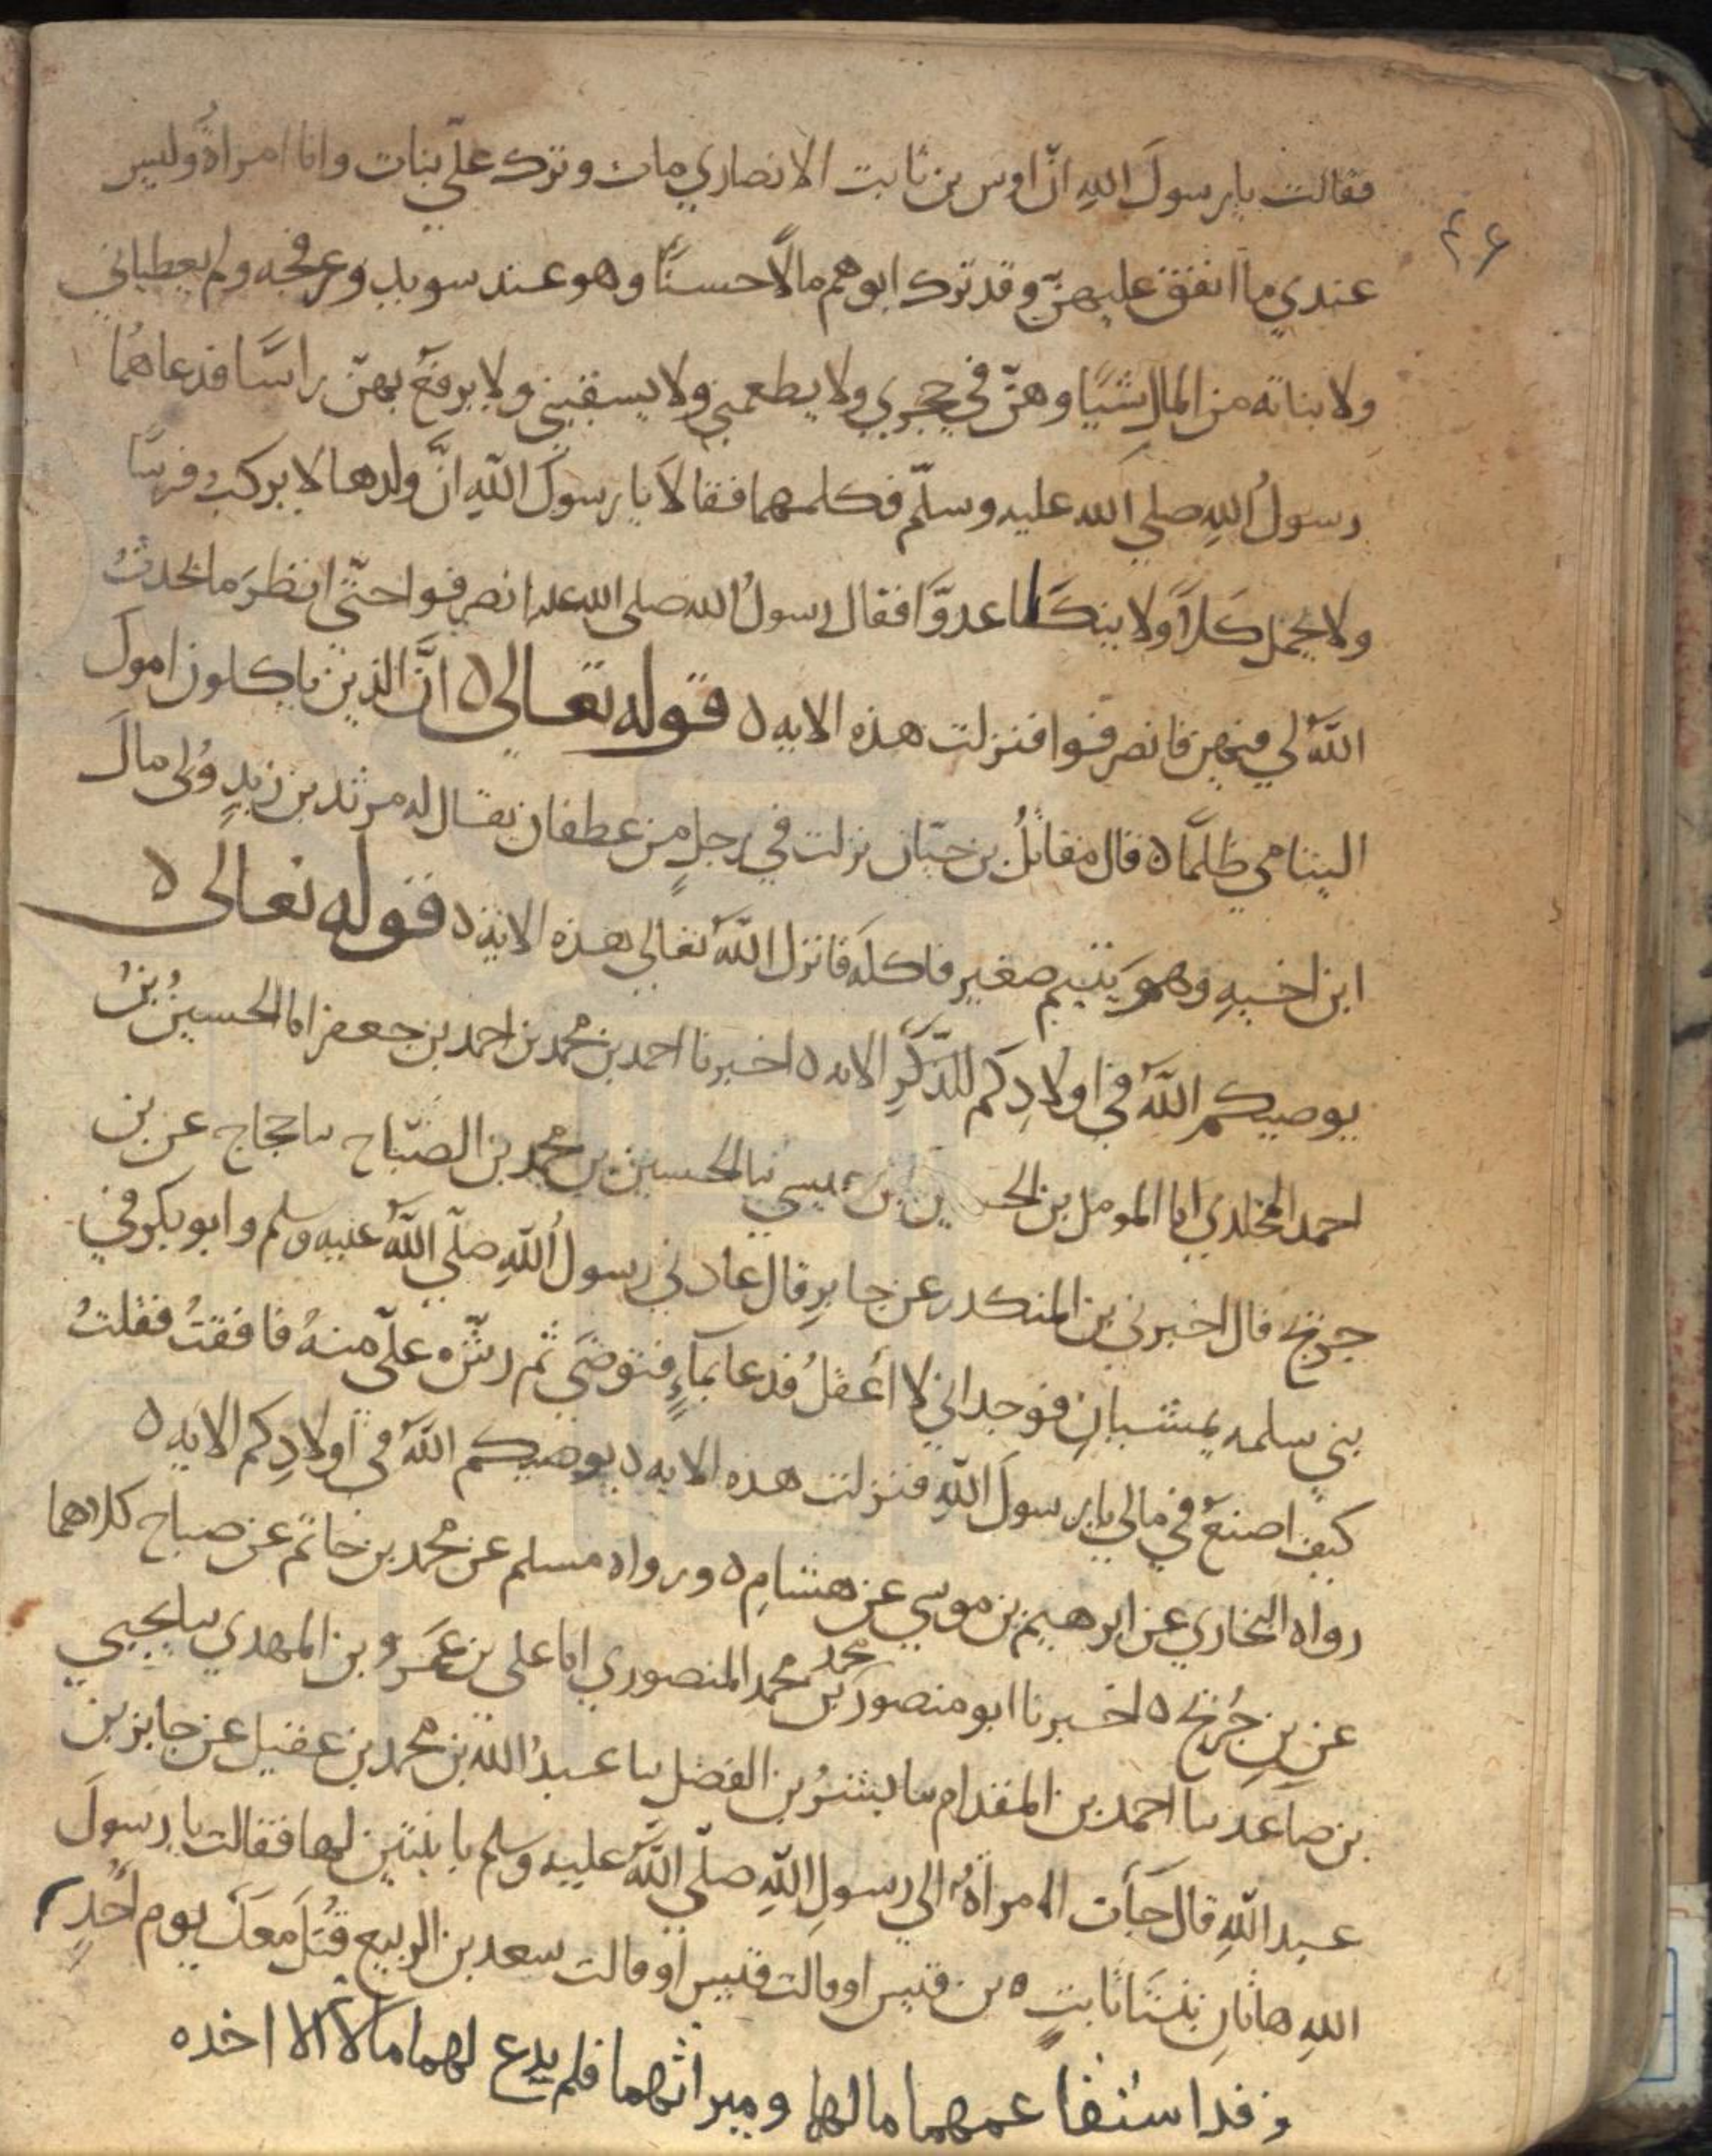 فقالت يا رسولَ اللهِ انّ اوس بن ثابت الانصاري مات وترك علىّ بنات وانا امراةٌ وليس
٤٦
عندي ما انفق عليهنّ وقد ترك ابوهم مالًا حسنًا وهو عند سويد وعرفجه ولم يعطياني
ولا بناته من المال شيًا وهنّ في حجري ولا يطعمني ولا يسقيني ولا يرفعُ بهنّ راسًا فدعاهُما
رسولُ اللهِ صلي الله عليه وسلّم فكلمهما فقالا يا رسولَ اللهِ انَّ ولدها لا يركب فرسًا
ولا يحمل كلًا ولا ينكا عدوًّا فقال رسولُ الله صلى الله عليه انصرفوا حتّي انظرَ ما يحدثُ
اللهُ لي فيهن فانصرفوا فنزلت هذه الايه ٥ قوله تعالى ٥ انَّ الذين ياكلون اموالَ
اليتامي ظلمًا ٥ قال مقاتلُ بن حيّان نزلت في رجلٍ من غطفان يقال له مرثد بن زيدٍ وُلى مالَ
ابن اخيهِ وهوَ يتيم صغير فاكله فانزل اللهُ تعالي هذه الايه ٥ قوله تعالى ٥
يوصيكم اللهُ في اولادِكم للذّكَرِ الايه ٥ اخبرنا احمد بن محمد بن احمد بن جعفر انا الحسينُ بنُ
احمد المخلدي انا المومل بن الحسين بن عيسي نا الحسين بن محمد بن الصّباح نا حجاج عن بن
جريج قال اخبرني بن المنكدر عن جابرٍ قال عادني رسولُ اللهِ صلّي اللهُ عليه وسلم وابو بكر في
بني سلمه يمشيانِ فوجداني لا أعقلُ فدعا بماءٍ فتوضّي ثم رشّه علىّ منهُ فافقتُ فقلتُ
كيف اصنعُ في مالي يا رسولَ اللهِ فنزلت هذه الايه ٥ يوصيكم اللهُ في اولادِكم الايه ٥
رواه البخاري عن ابرهيم بن موسي عن هشامٍ ٥ ورواه مسلم عن محمد بن حاتم عن صباح كلاهما
عن بنِ جُريج ٥ اخبرنا ابو منصور محمد بن محمد المنصوري انا علي بن عَمَر وبن المهدي نا يحيي
بن صاعد نا احمد بن المقدام نا بشرُ بن الفضل نا عبدُ الله بن محمد بن عقيل عن جابر بن
عبد اللهِ قال جآت المراةُ الي رسولِ اللهِ صلّي اللهُ عليه وسلم بابنتين لها فقالت يا رسولَ
اللهِ هاتانِ بنتا ثابتٍ ٥ بن قيس او قالت قيس او قالت سعد بن الربيع قُتلَ معكَ يوم احُدٍ
وقد استفا عمهما مالها وميراثهما فلم يدع لهما مالا الا اخذه